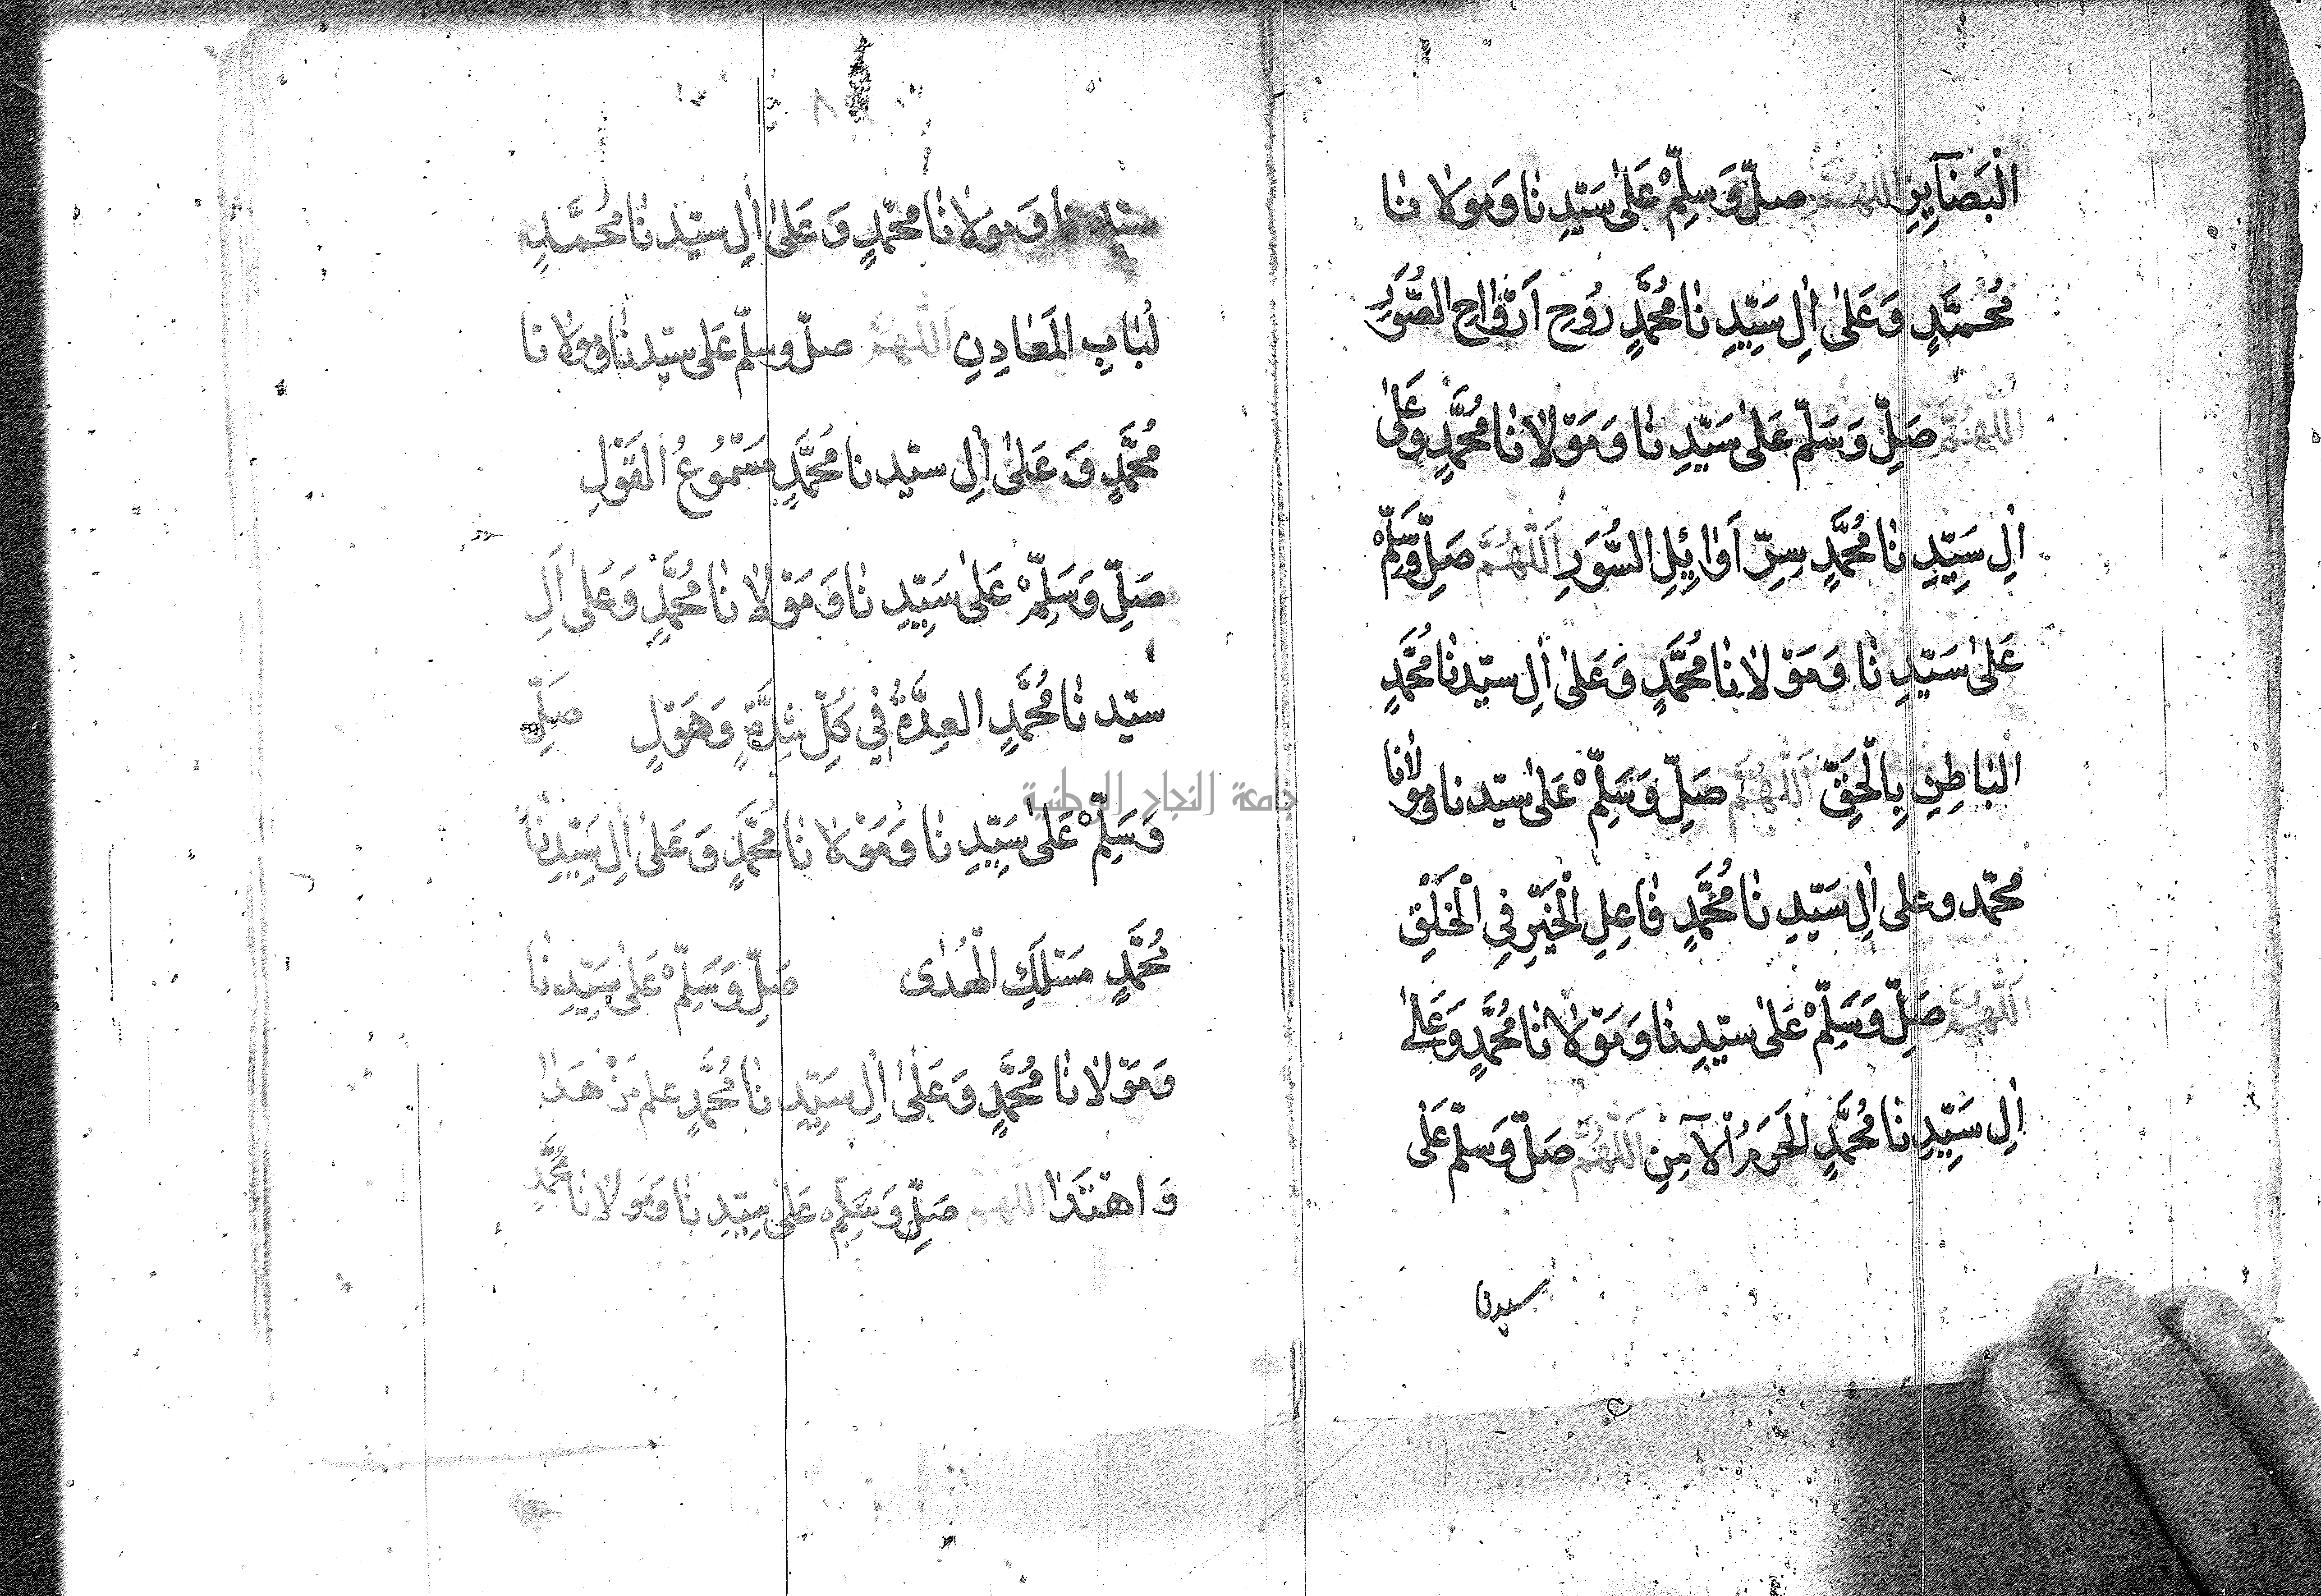 الْبَصَآيِرِ اللهُمَّ صلّ وَسَلِّمْ عَلىٰ سَيّدِ نَا وَمَولَا نَا
مُحمَّدٍ وَعَلىٰ اٰلِ سَيِّدِ نَا مُحَمَّدٍ رُوُحِ اَرْوَاحِ الصُّوَرِ
اللّٰهُمَّ صَلِّ وَسَلّم عَلىٰ سَيّدِ نَا وَمَوْلَانَا مُحَمَّدٍ وَعَلىٰ
اٰلِ سَيِّدِ نَا مُحَمَّدٍ سِرّ اَوٰائِلِ السُّوَرِ اَللّٰهُمَّ صَلِّ وَسَلِّمْ
عَلىٰ سَيّدِ نَا وَمَوْلَانَا مُحَمَّدٍ وَعَلىٰ اٰلِ سيّدنَا مُحَمَّدٍ
البَاطِنِ بِالْحَقِّ اَللّٰهُمَّ صَلِّ وَسَلِّمْ عَلىٰ سيّدنا ومولانا
محمّد وعلى اٰلِ سَيّدِ نَا مُحَمَّدٍ فَاعِلِ الْخَيْرِ فِي الْخَلْقِ
اَللّٰهُمَّ صَلِّ وَسَلِّمْ عَلىٰ سيّدِ نَا وَمَوْلَا نَا مُحَمَّدٍ وَعَلىٰ
اٰلِ سَيِّدِ نَا مُحَمَّدٍ الحَرَمُ الْاٰمِنِ اَللّٰهُمَّ صَلّ وَسَلّم عَلىٰ
سيدنا
٨
سيّدِ نَا وَمَوَلَانَا محمّدٍ وَعَلىٰ اٰلِ سيّد نَا مُحَمَّدٍ
لُبَابِ المَعَادِنِ اَللّٰهُمَّ صلّ وسلّم عَلى سيّد نَا ومَوْلَا نَا
مُحَمَّدٍ وَعَلىٰ اٰلِ سيّد نا مُحَمَّدٍ مَسْمُوُعُ الْقَوْلِ
صَلِّ وَسَلِّمْ عَلىٰ سَيِّدِ نَا وَمَوْلَا نَا مُحَمَّدٍ وَعَلىٰ اٰلِ
سيّد نَا مُحَمَّدٍ العِدَّةُ فِي كُلِّ شِدَّةٍ وَهَوْلٍ صَلِّ
جامعة النجاح الوطنية
وَسَلِّمْ عَلىٰ سَيِّدِ نَا وَمَوْلَا نَا مُحَمَّدٍ وَعَلىٰ اٰلِ سَيِّدِنَا
مُحَمَّدٍ مَسْلَكِ الْهُدٰى صَلِّ وَسَلِّمْ عَلىٰ سَيِّدِ نَا
وَمَوْلَا نَا مُحَمَّدٍ وَعَلىٰ اٰلِ سَيِّدِ نَا مُحَمَّدٍ علم مَنْ هَدٰا
وَاهْتَدٰا اَللّٰهم صَلِّ وَسَلِّمْ عَلىٰ سيّدِ نَا وَمَولَا نَا مُحَمَّدٍ